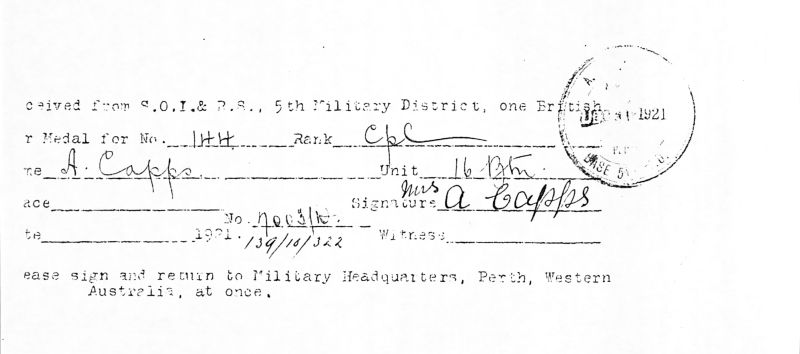 ceived from S.O.I.& R.S., 5th Military District, one British
r Medal for No. 144 Rank Cpl
me A. Capps Unit 16 Btn.
ace Signature Mrs A Capps
No.
te 1921. 139/10/322 Witness
ease sign and return to Military Headquarters, Perth, Western
Australia, at once.
1921
BASE